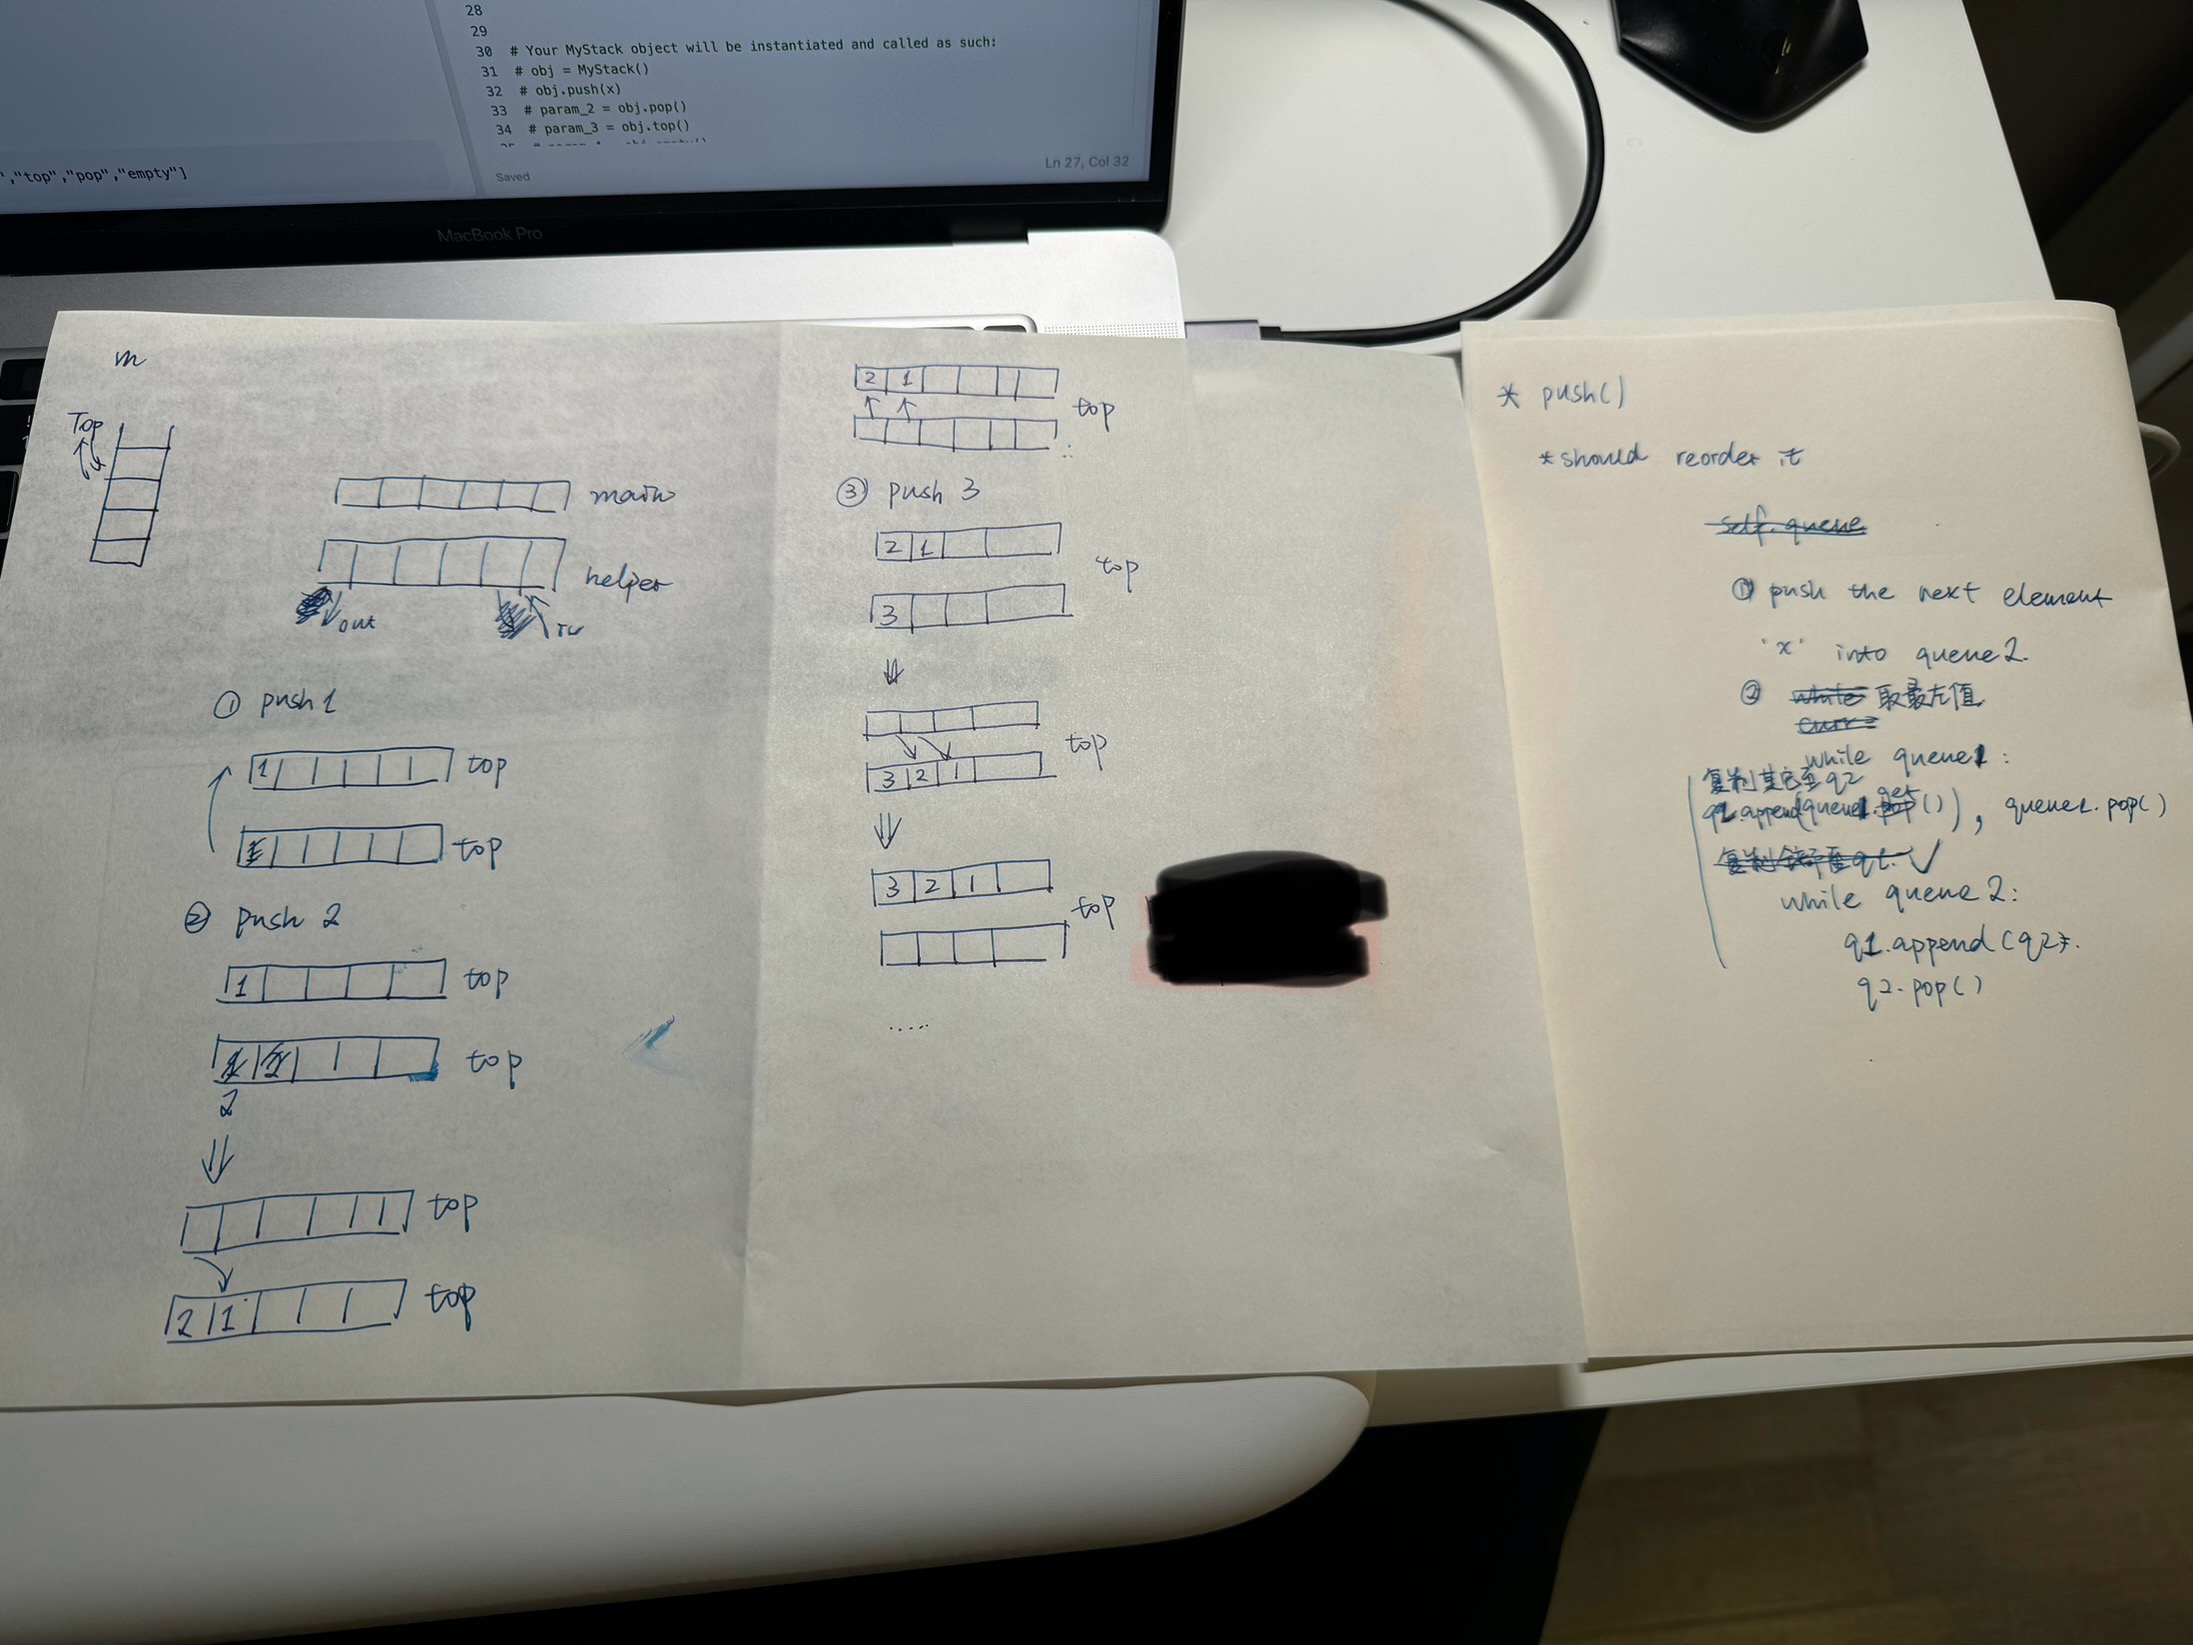 28
29
30 # Your MyStack object will be instantiated and called as such:
31 # obj = MyStack()
32 # obj.push(x)
33 # param_2 = obj.pop()
34 # param_3 = obj.top()
","top","pop","empty"]
Saved
Ln 27, Col 32
MacBook Pro
m
Top
main
helper
out
in
① push 1
1 top
top
② push 2
1 top
top
2
top
2 1 top
2 1
top
③ push 3
2 1
top
3
top
3 2 1
3 2 1
top
.....
* push()
* should reorder it
self.queue
① push the next element
'x' into queue2.
② while 取最左值
curr =
while queue1:
复制其它至q2
q2.append(queue1.get()), queue1.pop()
while queue2:
q1.append(q2).
q2.pop()